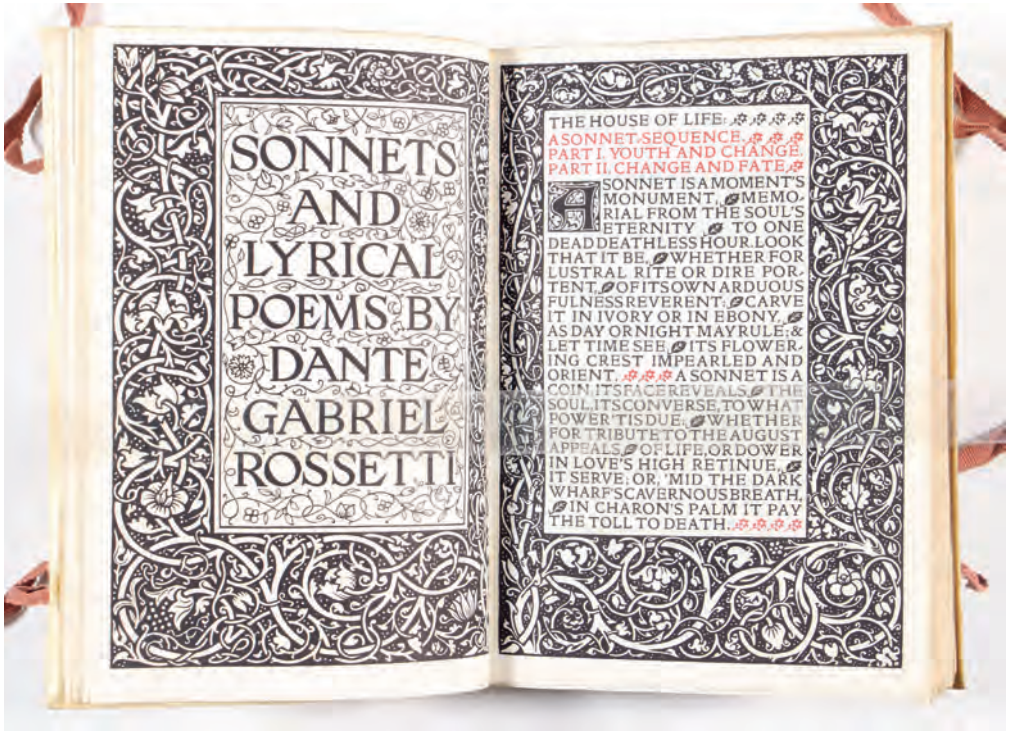 SONNETS
AND
LYRICAL
POEMS BY
DANTE
GABRIEL
ROSSETTI
THE HOUSE OF LIFE:
A SONNET-SEQUENCE.
PART I. YOUTH AND CHANGE.
PART II. CHANGE AND FATE.
A SONNET IS A MOMENT'S
MONUMENT, MEMO-
RIAL FROM THE SOUL'S
ETERNITY TO ONE
DEAD DEATHLESS HOUR. LOOK
THAT IT BE, WHETHER FOR
LUSTRAL RITE OR DIRE POR-
TENT, OF ITS OWN ARDUOUS
FULNESS REVERENT: CARVE
IT IN IVORY OR IN EBONY,
AS DAY OR NIGHT MAY RULE; &
LET TIME SEE ITS FLOWER-
ING CREST IMPEARLED AND
ORIENT. A SONNET IS A
COIN, ITS FACE REVEALS THE
SOUL, ITS CONVERSE, TO WHAT
POWER 'TIS DUE: WHETHER
FOR TRIBUTE TO THE AUGUST
APPEALS OF LIFE, OR DOWER
IN LOVE'S HIGH RETINUE,
IT SERVE; OR, 'MID THE DARK
WHARF'S CAVERNOUS BREATH,
IN CHARON'S PALM IT PAY
THE TOLL TO DEATH.